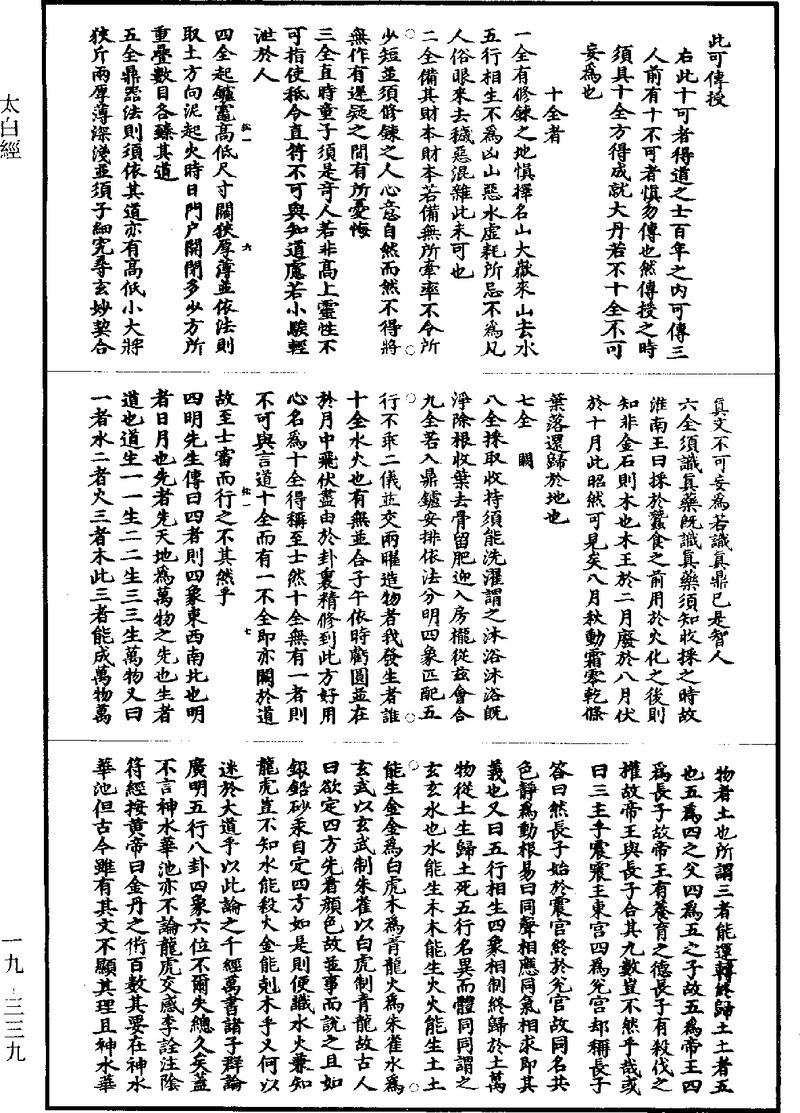 太白經
一九-三三九
此可傳授
右此十可者得道之士百年之內可傳三
人前有十不可者慎勿傳也然傳授之時
須具十全方得成就大丹若不十全不可
妄爲也
十全者
一全有修鍊之地慎擇名山大嶽來山去水
五行相生不爲凶山惡水虛耗所忌不爲凡
人俗眼來去穢惡混雜此未可也
二全備其財本財本若備無所牽率不令所
少短並須修鍊之人心意自然而然不得將
無作有遲疑之間有所憂悔
三全直時童子須是奇人若非高上靈性不
可指使秪令直符不可與知道慮若小騃輕
泄於人
四全起鑪竈高低尺寸闊狹厚薄並依法則
取土方向泥起火時日門户開閉多少方所
重疊數目各臻其道
五全鼎器法則須依其道亦有高低小大將
狹斤兩厚薄深淺並須子細究尋玄妙契合
真文不可妄爲若識真鼎已是智人
六全須識真藥旣識真藥須知收採之時故
淮南王曰採於蠶食之前用於火化之後則
知非金石則木也木王於二月廢於八月伏
於十月此昭然可見矣八月秋動霜零乾條
葉落還歸於地也
七全　闕
八全採取收持須能洗濯謂之沐浴沐浴旣
淨除根收葉去骨留肥迎入房櫳從兹會合
九全若入鼎鑪安排依法分明四象匹配五
行不乖二儀並交兩曜造物者我發生者誰
十全水火也有無並合子午依時虧圓並在
於月中飛伏盡由於卦裏精修到此方好用
心名爲十全得稱至士然十全無有一者則
不可與言道十全而有一不全即亦闕於道
故至士審而行之不其然乎
四明先生傳曰四者則四象東西南北也明
者日月也先者先天地爲萬物之先也生者
道也道生一一生二二生三三生萬物又曰
一者水二者火三者木此三者能成萬物萬
物者土也所謂三者能運轉終歸土土者五
也五爲四之父四爲五之子故五爲帝王四
爲長子故帝王有養育之德長子有殺伐之
權故帝王與長子合其九數豈不然乎哉或
曰三主乎震震主東宮四爲兊宮却稱長子
答曰然長子始於震宮終於兊宮故同名共
色靜爲動根易曰同聲相應同氣相求即其
義也又曰五行相生四象相制終歸於土萬
物從土生歸土死五行名異而體同同謂之
玄玄水也水能生木木能生火火能生土土
能生金金爲白虎木爲青龍火爲朱雀水爲
玄武以玄武制朱雀以白虎制青龍故古人
曰欲定四方先看顏色故並事而說之且如
銀鉛砂汞自定四方如是則便識水火兼知
龍虎豈不知水能殺火金能剋木乎又何以
迷於大道乎以此論之千經萬書諸子群論
廣明五行八卦四象六位不爾失總久矣蓋
不言神水華池亦不論龍虎交感李詮注陰
符經按黃帝曰金丹之術百數其要在神水
華池但古今雖有其文不顯其理且神水華